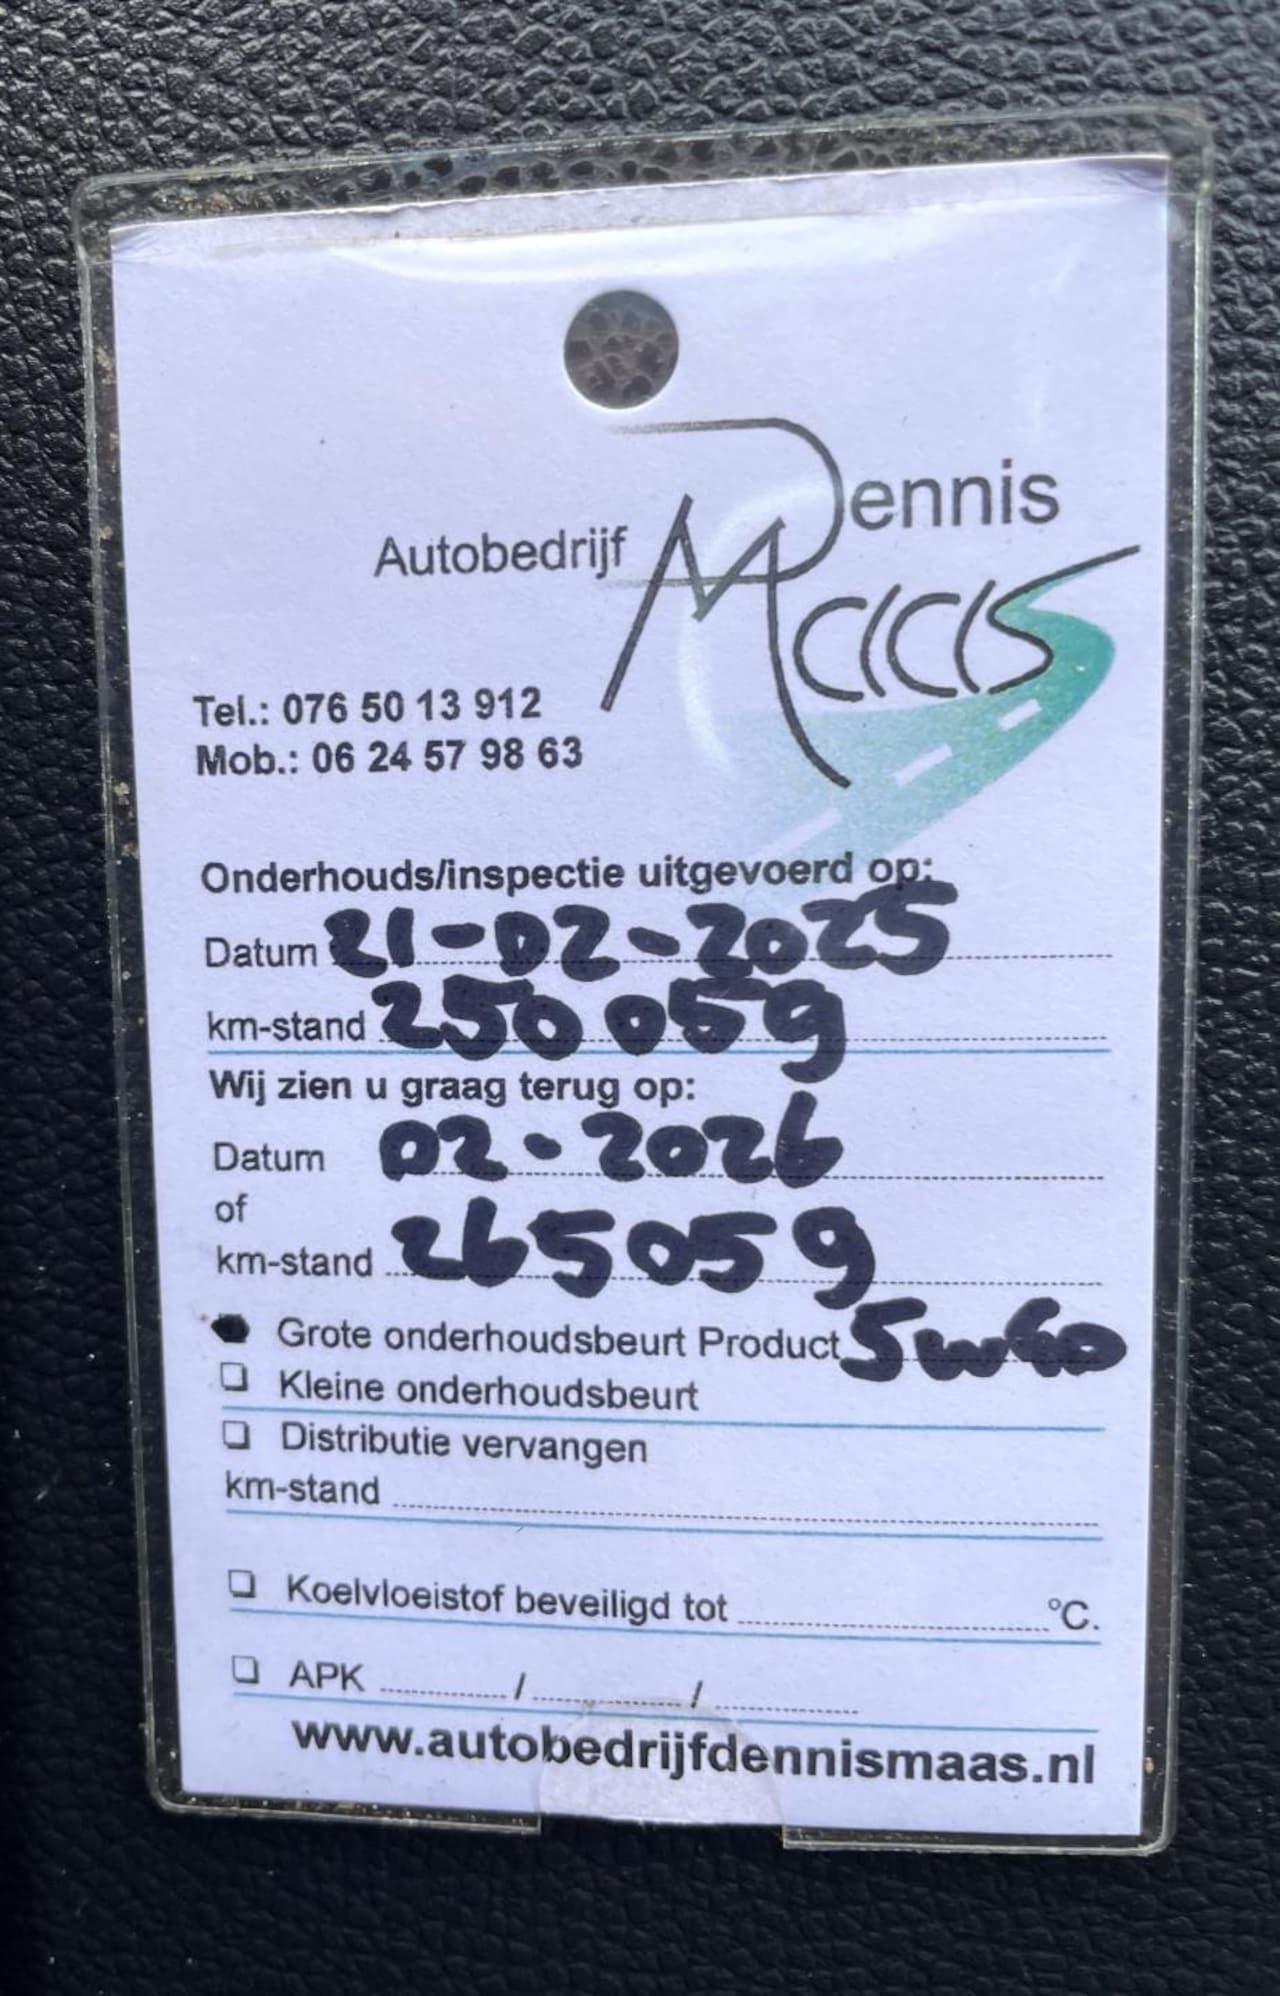 Autobedrijf Dennis Maas
Tel.: 076 50 13 912
Mob.: 06 24 57 98 63
Onderhouds/inspectie uitgevoerd op:
Datum 21-02-2025
km-stand 250059
Wij zien u graag terug op:
Datum 02-2026
of
km-stand 265059
Grote onderhoudsbeurt Product 5w40
❑ Kleine onderhoudsbeurt
❑ Distributie vervangen
km-stand ..........
❑ Koelvloeistof beveiligd tot .......... °C.
❑ APK ........../........../..........
www.autobedrijfdennismaas.nl